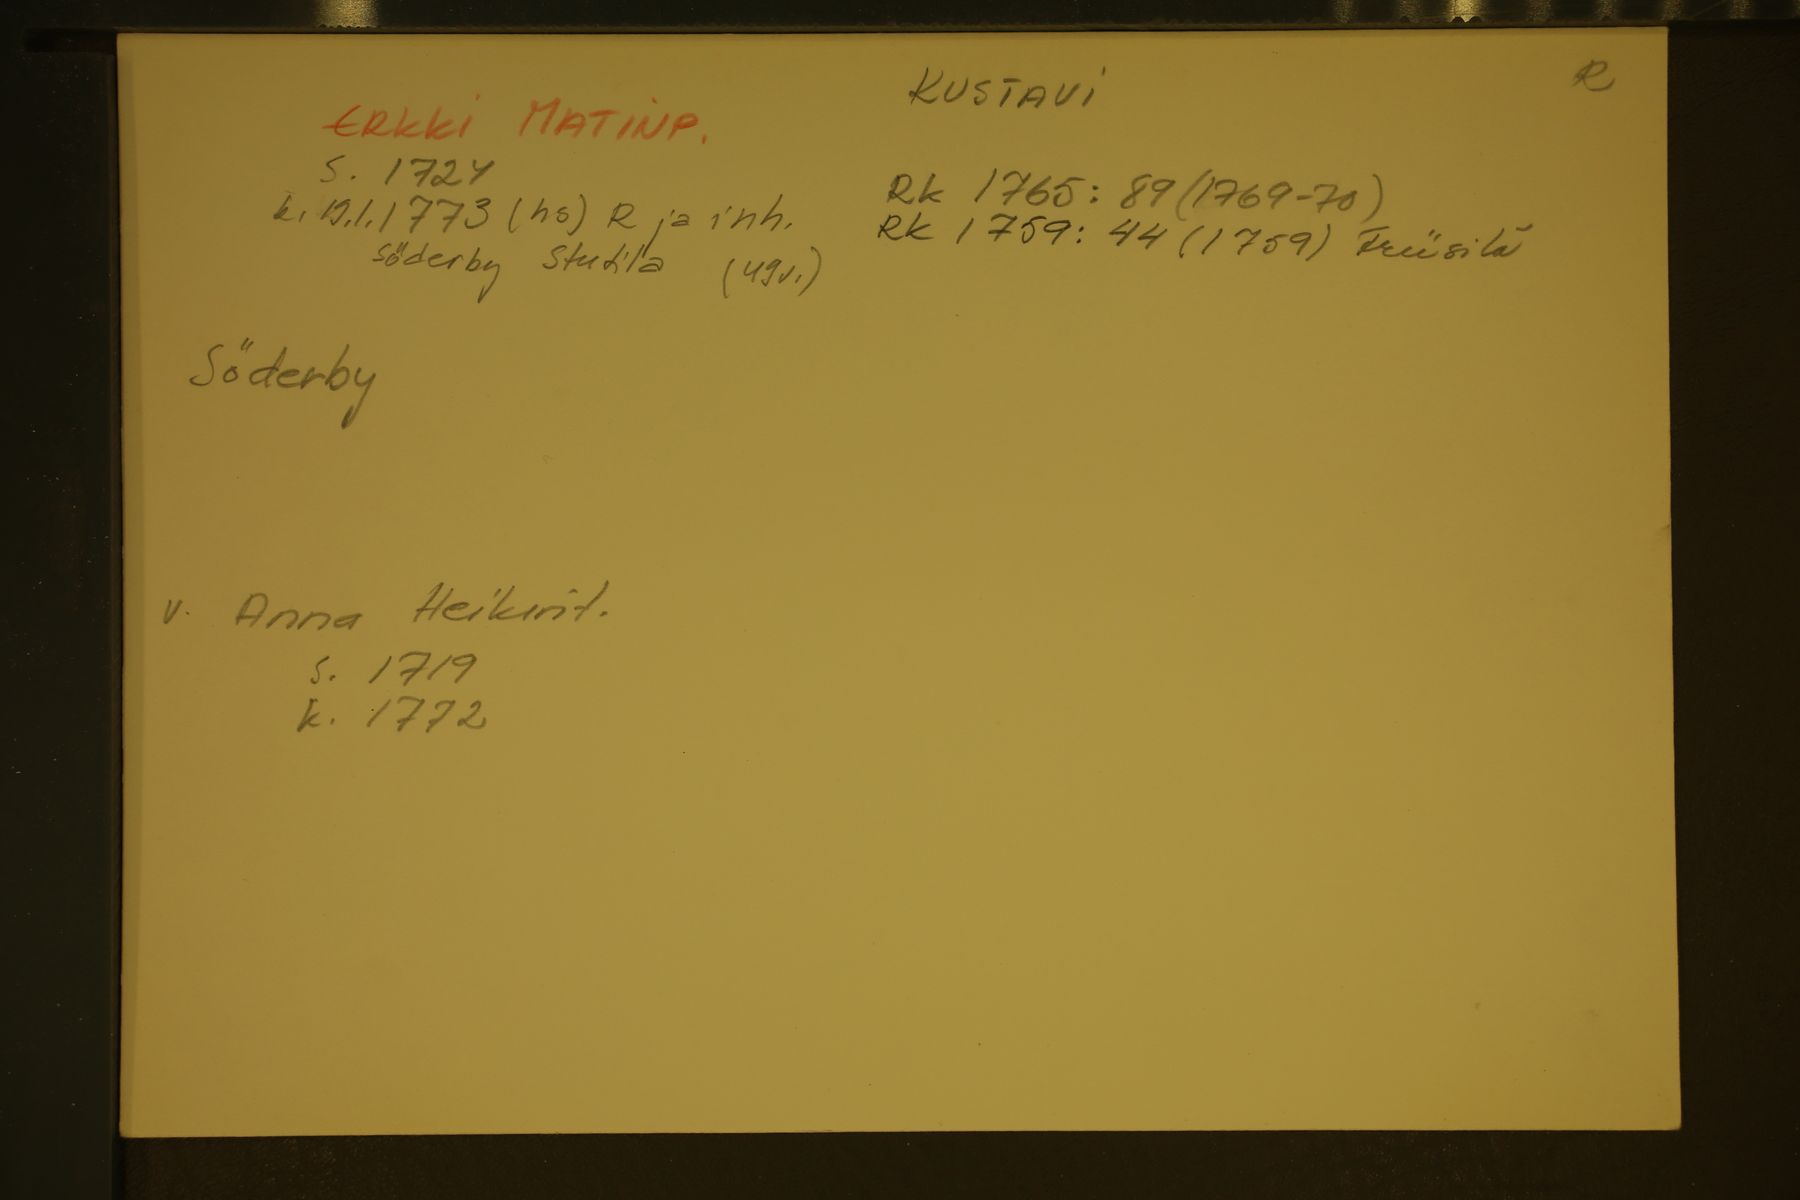 KUSTAVI
R
ERKKI MATINP.
s. 1724
k. 19.1.1773 (hs) R ja inh.
Söderby Stutila (49v.)
Rk 1765: 89 (1769-70)
Rk 1759: 44 (1759)
Söderby
v. Anna Heikint.
s. 1719
k. 1772